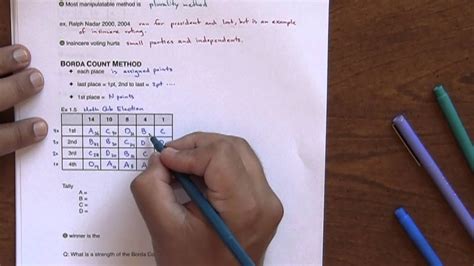 Most manipulatable method is plurality method
ex, Ralph Nadar 2000, 2004 ran for president and lost, but is an example of insincere voting.
Insincere voting hurts small parties and independents.
BORDA COUNT METHOD
each place is assigned points
last place = 1pt, 2nd to last = 2pt ....
1st place = N points
Ex 1.5 Math Club Election
14 10 8 4 1
1st A C D B C
2nd B B C D
3rd C D B C
4th D A A A
Tally
A =
B =
C =
D =
winner is the
Q: What is a strength of the Borda Co